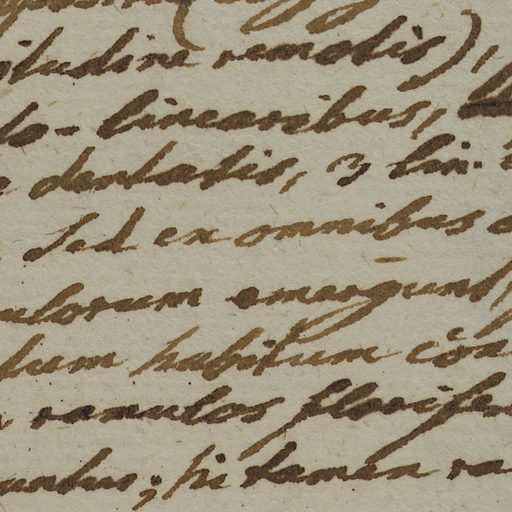 itudine remotis),
to-linearibus,
dentatis, 3 lin.
Sed ex omnibus
ulorum emergunt,
tum habitum con
ramulos florifer
untur; si tamen ra